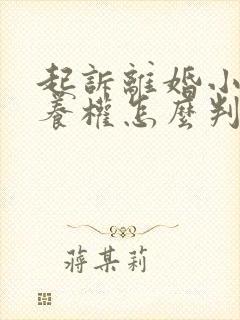 起訴離婚小
養權怎麼判
蔣某莉